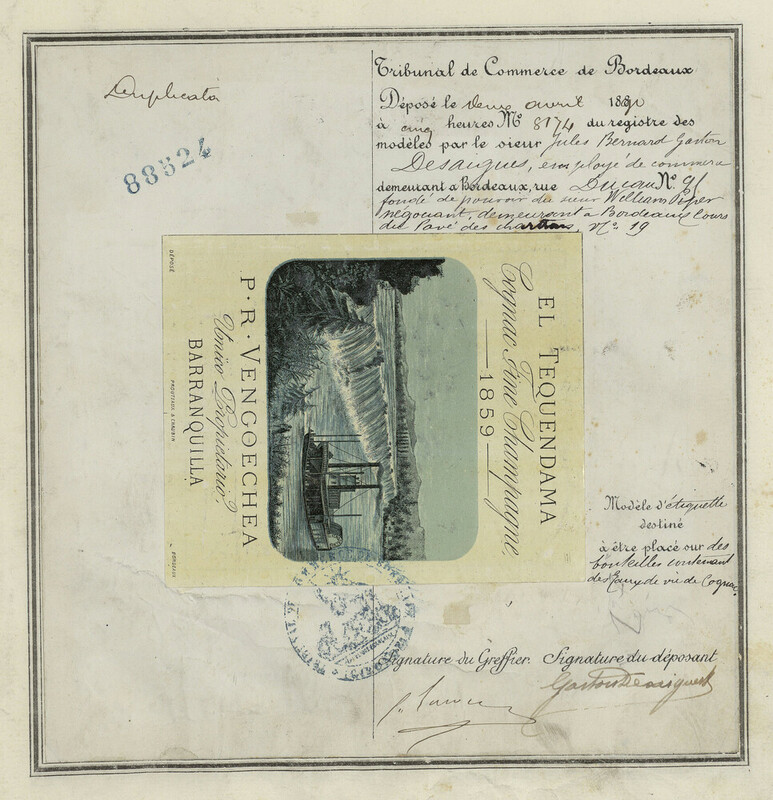 Duplicata
88524
Tribunal de Commerce de Bordeaux
Déposé le deux avril 1890
à cinq heures Nº 8174 du registre des
modèles par le sieur Jules Bernard Gaston
Desaigues, employé de commerce
demeurant à Bordeaux, rue Nº 91
fondé de pouvoir du sieur William Piper
négociant, demeurant à Bordeaux Cours
du Pavé des chartrons, Nº 19
EL TEQUENDAMA
Cognac Fine Champagne
1859
P. R. VENGOECHEA
Unico Propietario.
BARRANQUILLA
DÉPOSÉ
BORDEAUX
Modèle d'étiquette
destiné
à être placé sur des
bouteilles contenant
des Eaux de vie de Cognac
Signature du Greffier. Signature du déposant